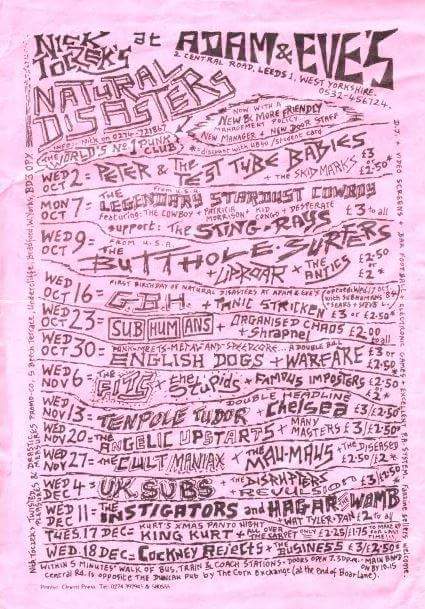 NICK TOCZEK'S at ADAM & EVE'S
2 CENTRAL ROAD, LEEDS 1, WEST YORKSHIRE.
0532-456724.
NATURAL DISASTERS
*NOW WITH A NEW & MORE FRIENDLY
MANAGEMENT POLICY
NEW MANAGER + NEW DOOR STAFF
*: discount with UB40 / student card
INFO: Nick on 0274-721867
(THE WORLD'S No 1 PUNK CLUB)
WED OCT 2 = PETER & THE TEST TUBE BABIES + THE SKIDMARKS £3 £2.50*
MON OCT 7 = From U.S.A. THE LEGENDARY STARDUST COWBOY
featuring: THE COWBOY + PATRICIA MORRISON KID CONGO + DESPERATE £3 to all
support: THE STING-RAYS
WED OCT 9 = FROM U.S.A. BUTTHOLE SURFERS
+ UPROAR + THE ANTICS £2.50 or £2*
FIRST BIRTHDAY OF NATURAL DISASTERS AT ADAM & EVE'S
WED OCT 16 = G.B.H. + PANIC STRICKEN £3 or £2.50*
WED OCT 23 = SUBHUMANS + ORGANISED CHAOS + Shrapnel £2.00 to all
PUNK MEETS METAL AND SPEEDCORE... A DOUBLE BILL
WED OCT 30 = ENGLISH DOGS + WARFARE £3 or £2.50*
WED NOV 6 = THE FITS + the Stupids + FAMOUS IMPOSTERS £2.50 £2*
DOUBLE HEADLINE
WED NOV 13 = TENPOLE TUDOR + Chelsea £3/£2.50*
WED NOV 20 = THE ANGELIC UPSTARTS + MANY MASTERS £3/£2.50*
WED NOV 27 = THE CULT MANIAX + THE MAU-MAUS + THE DISEASED £2.50/£2*
WED DEC 4 = UK SUBS + THE DISRUPTERS REVULSION £3/£2.50*
WED DEC 11 = THE INSTIGATORS and HAGAR THE WOMB
+ WAT TYLER £2 to all
KURT'S XMAS PANTO NIGHT
TUES. 17 DEC = KING KURT + ALL OVER THE CARPET ONLY £2.25/£1.75
WED. 18 DEC = COCKNEY REJECTS + THE BUSINESS £3/£2.50*
WITHIN 5 MINUTES' WALK OF BUS, TRAIN & COACH STATIONS. DOORS OPEN 7.30PM. MAIN BAND ON BY 10.15
Central Rd. is OPPOSITE THE DUNCAN PUB by The Corn Exchange (at the End of Boar Lane).
D.J. + VIDEO SCREENS + BAR FOOTBALL + ELECTRONIC GAMES + EXCELLENT P.A. SYSTEM
Nick Toczek, TWISTED & DRASTIC PLEASURES MEASURES PROMO-CO. 5 Beech Terrace, Undercliffe, Bradford W. Yorks. BD3 0PY